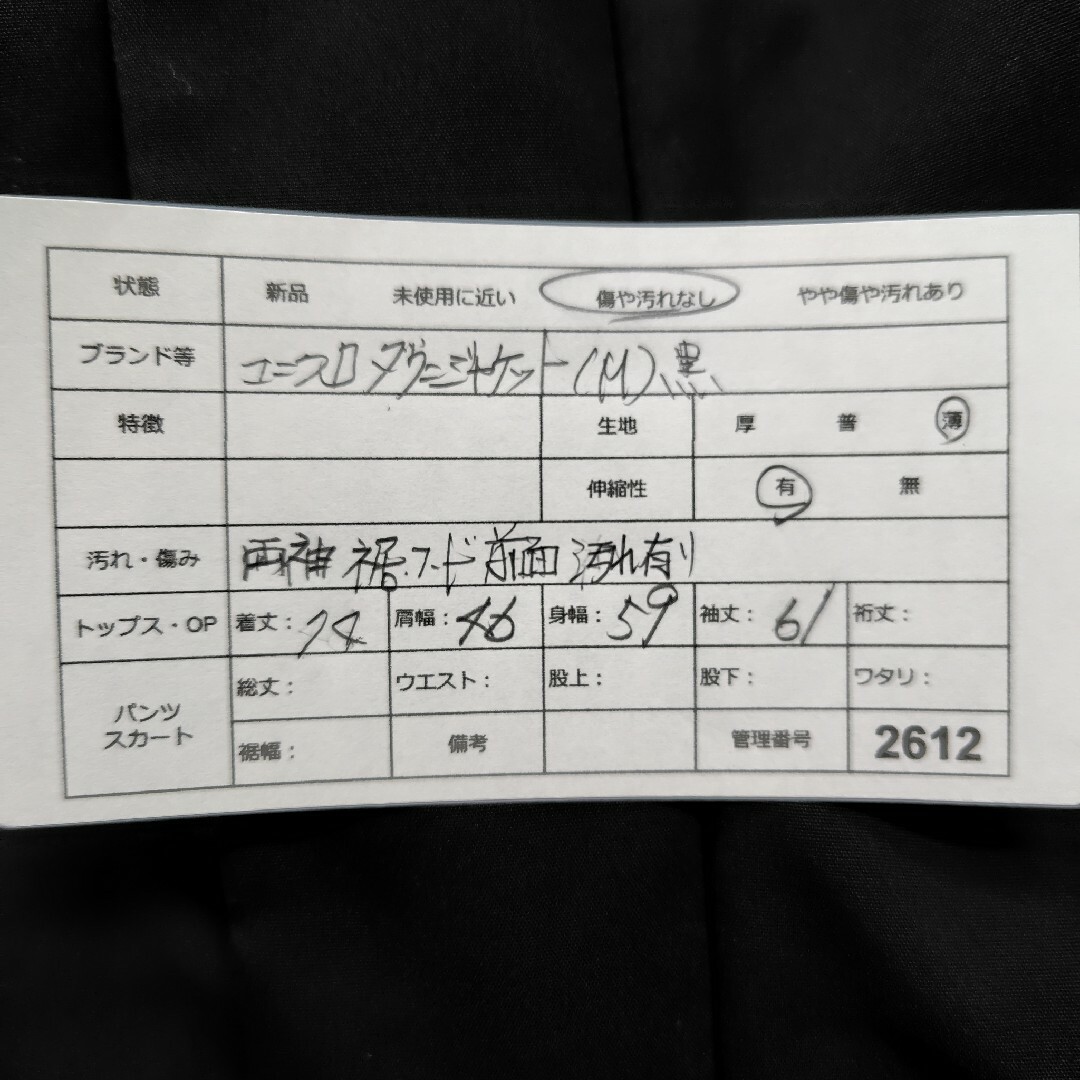 状態 新品 未使用に近い 傷や汚れなし やや傷や汚れあり
ブランド等 ユニクロ ダウンジャケット (M) 黒
特徴 生地 厚 普 薄
伸縮性 有 無
汚れ・傷み 両袖 裾 フード 前面 汚れ有り
トップス・OP 着丈: 74 肩幅: 46 身幅: 59 袖丈: 61 裄丈:
パンツ
スカート
総丈: ウエスト: 股上: 股下: ワタリ:
裾幅: 備考 管理番号 2612